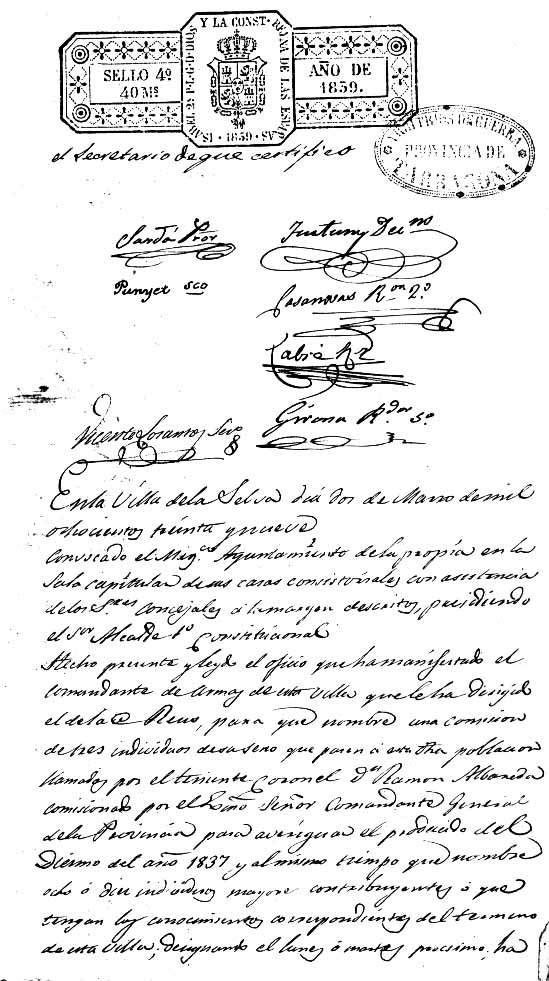 Y LA CONST. REYNA DE LAS ESPAÑAS
ISABEL 2ª P. L. G. D. DIOS
1839
SELLO 4º
40 Ms
AÑO DE
1839.
el Secretario de que certifico
ARBITRIOS DE GUERRA
PROVINCIA DE
TARRAGONA
Sardá Pror
Punyet sco
Casanovas Ron 2º
Cabré Rr
Girona Rdor 5º
Vicente Losantos Srio
En la Villa de la Selva dia dos de Marzo de mil
ochocientos treinta y nueve
Convocado el Magco Ayuntamiento de la propia en la
Sala capitular de sus casas consistoriales con asistencia
de los Sres Concejales á la margen descritos, presidiendo
el Sor Alcalde 1º Constitucional
Hecho presente y leydo el oficio que ha manifestado el
Comandante de armas de esta villa que le ha dirijido
el de la de Reus, para que nombre una comision
de tres individuos de su seno que pasen á esta dha poblacion
llamados por el teniente Coronel Dn Ramon Albareda
comisionado por el Exmo Señor Comandante General
de la Provincia para averiguar el producido del
Diezmo del año 1837 y al mismo tiempo que nombre
ocho ó diez individuos mayores contribuyentes ó que
tengan los conocimientos correspondientes del termino
de esta villa; designando el lunes ó martes procsimo, ha